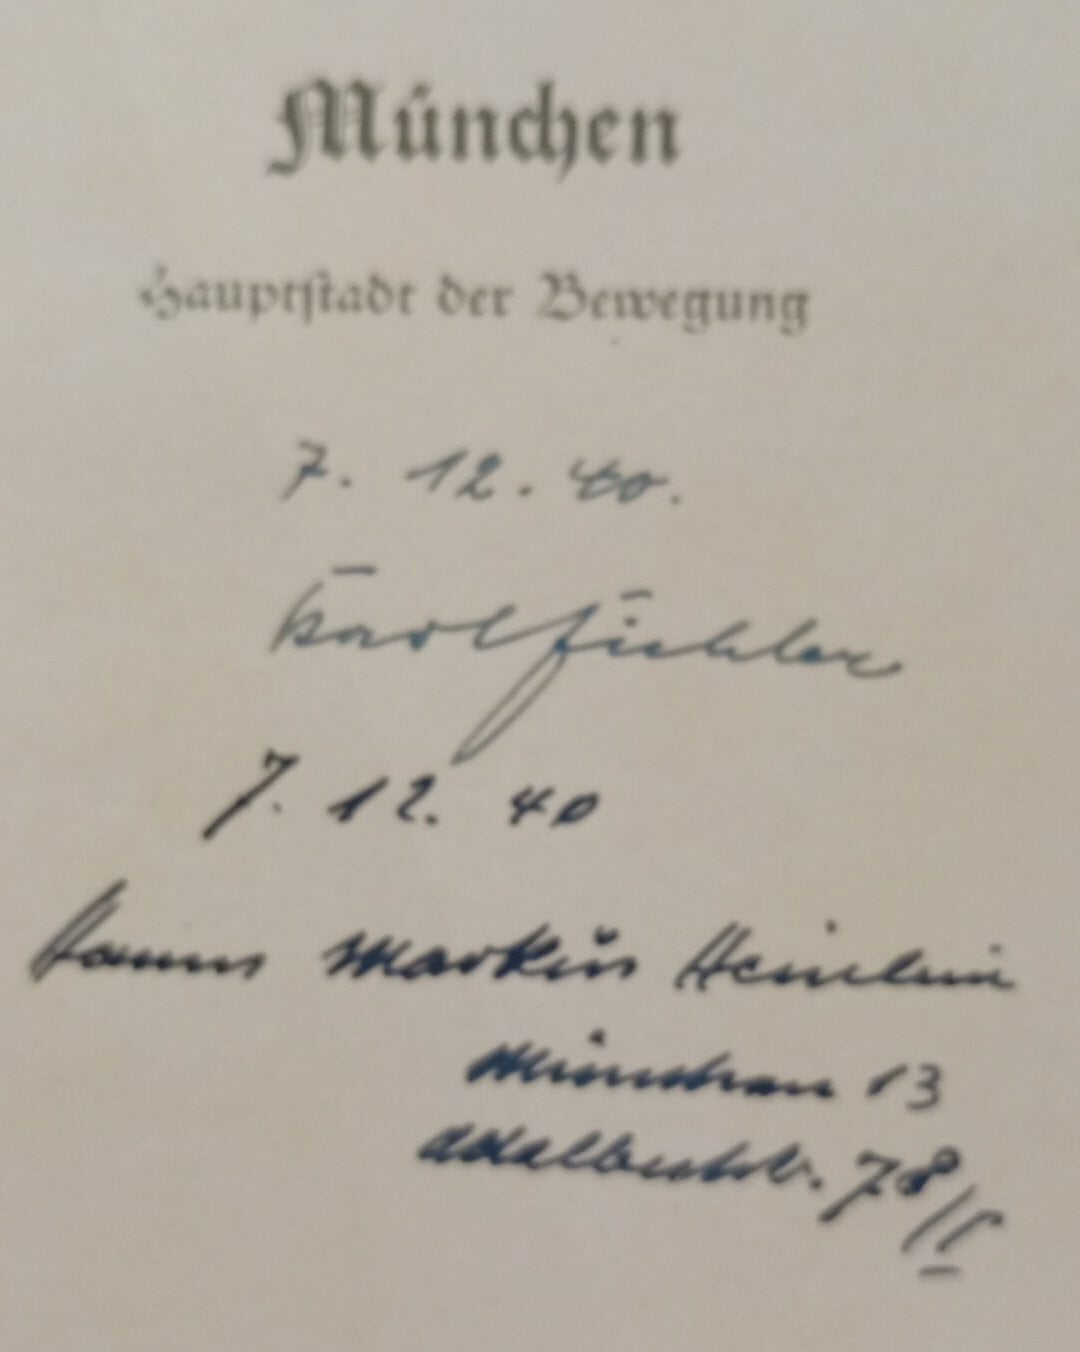 München
Hauptstadt der Bewegung
7. 12. 40.
Karl
7. 12. 40
Hanns Markus Heinlein
München 13
Adalbertstr. 78/II